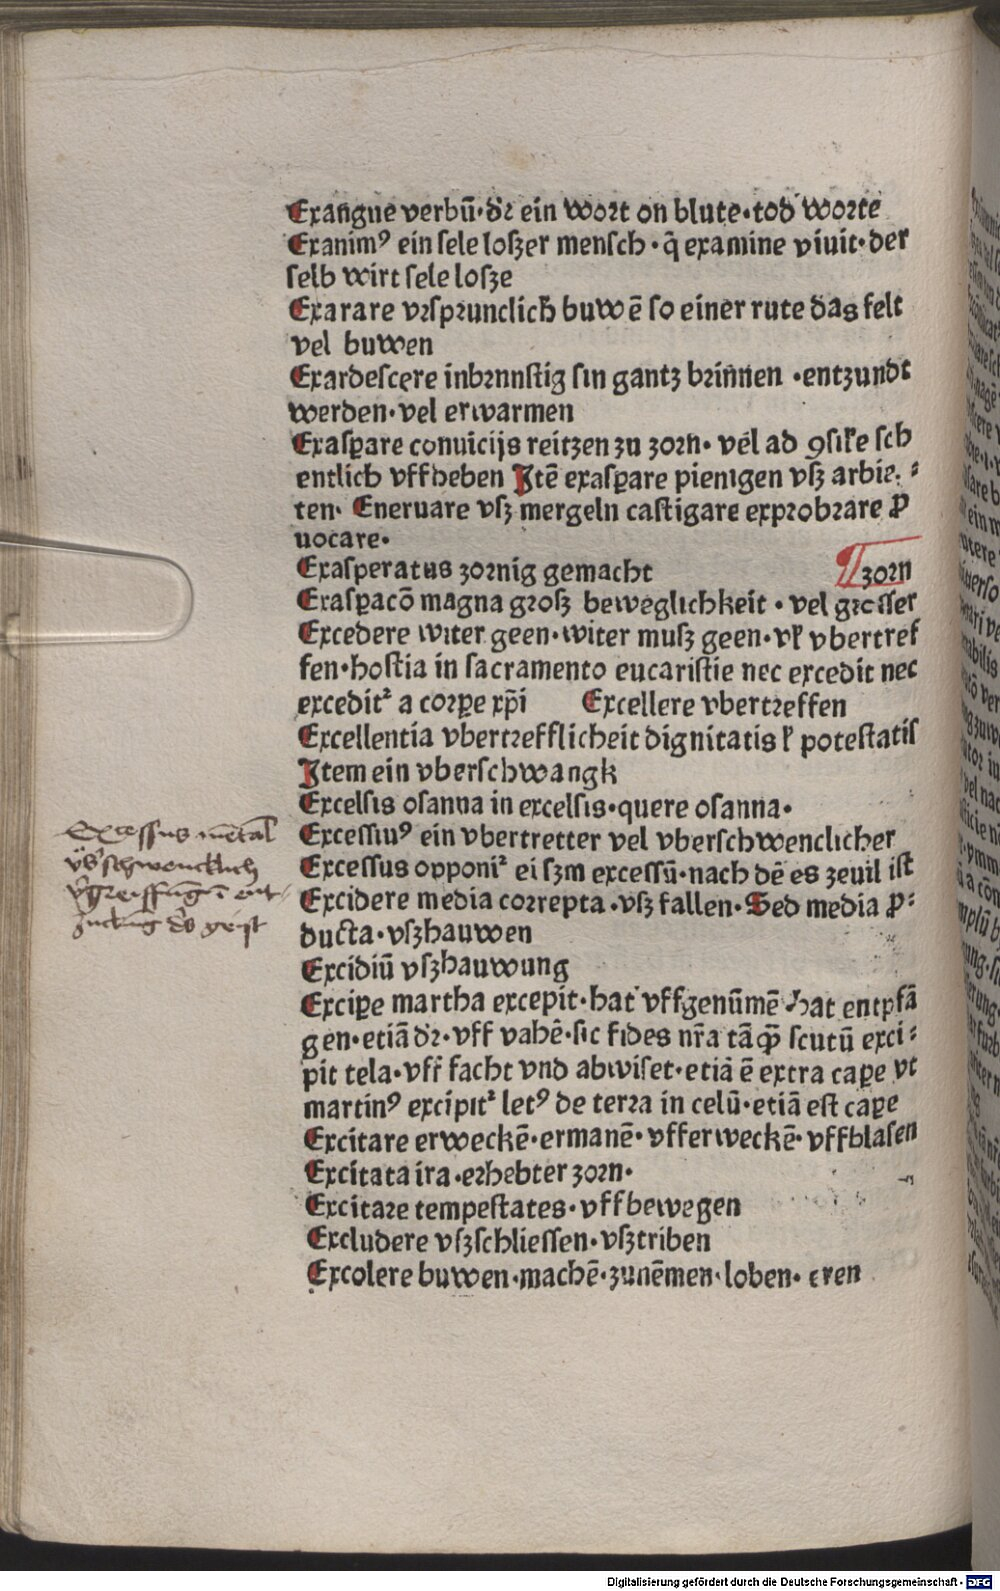 Exangue verbū·dꝛ ein woꝛt on blute·tod woꝛte
Exanimꝰ ein ſele loſzer menſch·q̄ examine viuit·der
ſelb wirt ſele loſze
Exarare vꝛſpꝛunclich buwē ſo einer rute das felt
vel buwen
Exardeſcere inbꝛnnſtig ſin gantz bꝛinnen·entzundt
werden·vel erwarmen
Exaſꝑare conuicijs reitzen zu zoꝛn·vel ad ꝯſilꝉe ſch
entlich vffheben Jtē exaſꝑare pienigen vſz arbie
ten· Eneruare vſz mergeln caſtigare expꝛobꝛare ꝓ
uocare·
Exaſperatus zoꝛnig gemacht ¶zoꝛn
Exaſꝑacō magna gꝛoſz beweglichkeit·vel groſſer
Excedere witer geen·witer muſz geen·vꝉ vbertref
fen·hoſtia in ſacramento eucariſtie nec excedit nec
exceditᷣ a coꝛꝑe xp̄i Excellere vbertꝛeffen
Excellentia vbertꝛefflicheit dignitatis ꝉ poteſtatiſ
Jtem ein vberſchwangk
Excelſis oſanna in excelſis·quere oſanna·
Exceſſiuꝰ ein vbertretter vel vberſchwenclicher
Exceſſus opponiᷣ ei ſzm exceſſū·nach dē es zeuil iſt
Excidere media coꝛrepta·vſz fallen·Sed media ꝓ⸗
ducta·vſzhauwen
Excidiū vſzhauwung
Exciꝑe martha excepit·hat vffgenūmē hat entpfā
gen·etiā dꝛ·vff vahē·ſic fides nr̄a tāꝙ̄ ſcutū exci⸗
pit tela·vff facht vnd abwiſet·etiā ē extra caꝑe vt
martinꝰ excipitᷣ letꝰ de terꝛa in celū·etiā eſt caꝑe
Excitare erweckē·ermanē·vfferweckē·vffblaſen
Excitata ira·erhebter zoꝛn·
Excitare tempeſtates·vffbewegen
Excludere vſzſchlieſſen·vſztriben
Excolere buwen·machē·zunēmen·loben·eren
Exceſſus mētal
v̈bſchwencklich
v̈greiffung i ent⸗
zuckūg ds geiſt
Digitalisierung gefördert durch die Deutsche Forschungsgemeinschaft - DFG